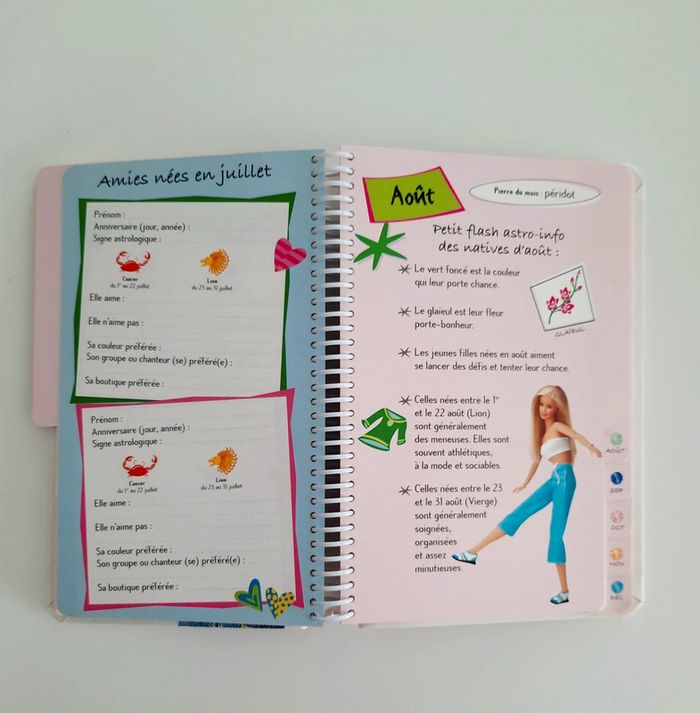 Amies nées en juillet
Prénom :
Anniversaire (jour, année) :
Signe astrologique :
Cancer
du 1er au 22 juillet
Lion
du 23 au 31 juillet
Elle aime :
Elle n'aime pas :
Sa couleur préférée :
Son groupe ou chanteur (se) préféré(e) :
Sa boutique préférée :
Prénom :
Anniversaire (jour, année) :
Signe astrologique :
Cancer
du 1er au 22 juillet
Lion
du 23 au 31 juillet
Elle aime :
Elle n'aime pas :
Sa couleur préférée :
Son groupe ou chanteur (se) préféré(e) :
Sa boutique préférée :
Août
Pierre du mois : péridot
Petit flash astro-info
des natives d'août :
Le vert foncé est la couleur
qui leur porte chance.
Le glaïeul est leur fleur
porte-bonheur.
GLAÏEUL
Les jeunes filles nées en août aiment
se lancer des défis et tenter leur chance.
Celles nées entre le 1er
et le 22 août (Lion)
sont généralement
des meneuses. Elles sont
souvent athlétiques,
à la mode et sociables.
Celles nées entre le 23
et le 31 août (Vierge)
sont généralement
soignées,
organisées
et assez
minutieuses.
AOÛT
SEP
OCT
NOV
DÉC